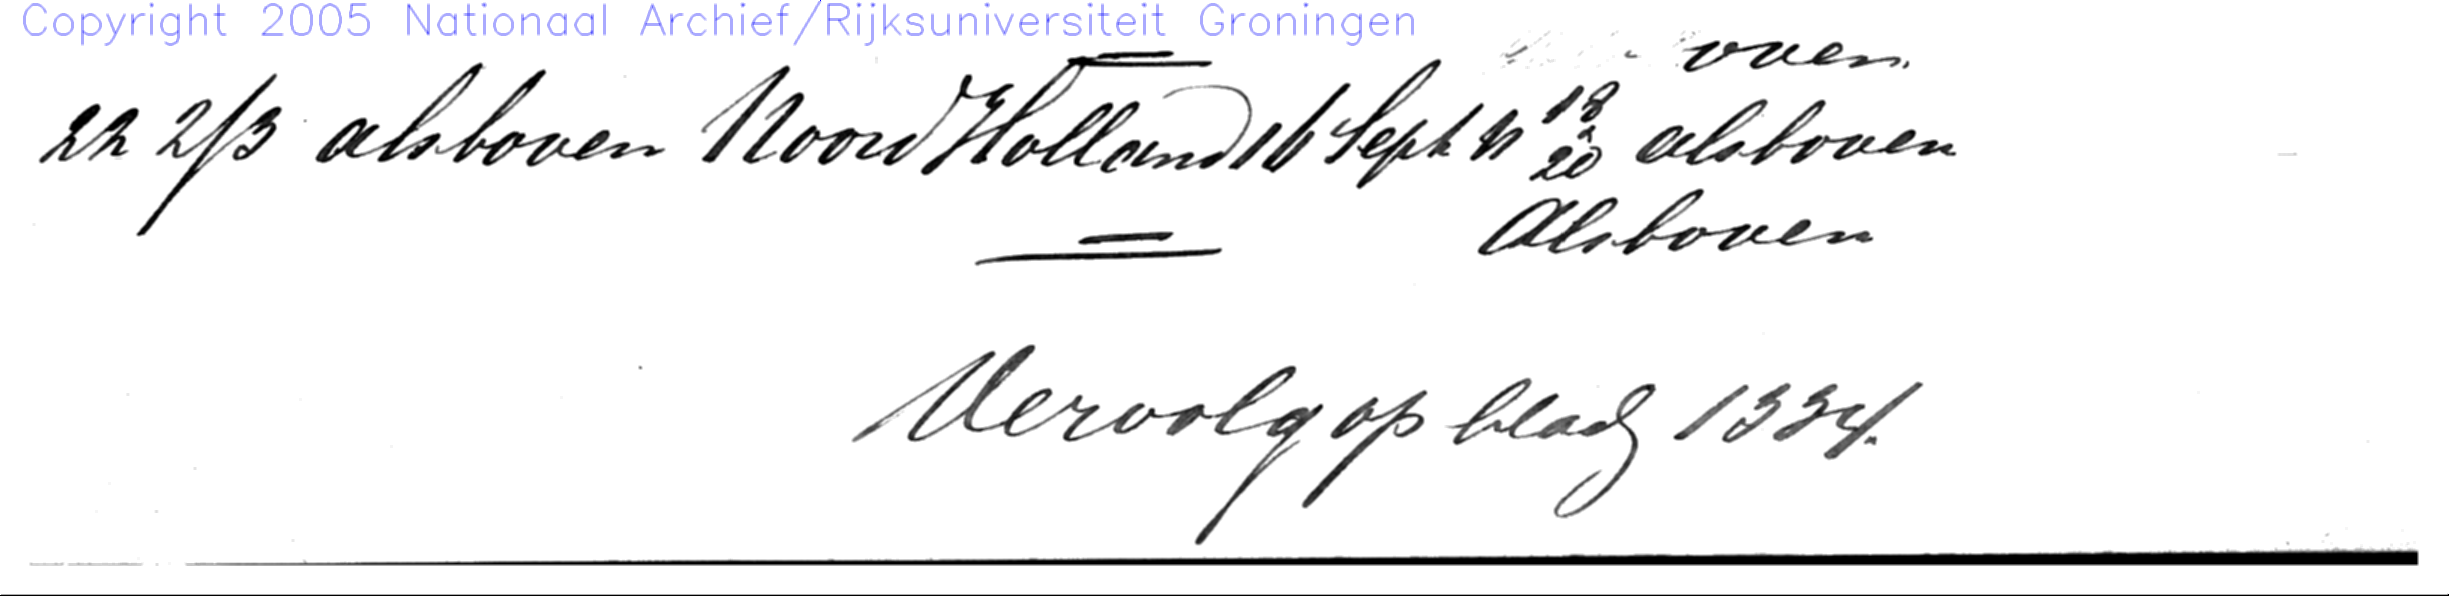 Copyright 2005 Nationaal Archief/Rijksuniversiteit Groningen
oven
22 2/3 alsboven Noord Holland 16 Sept n 18 20 alsboven
Alsboven
Vervolg op bladz 1334.